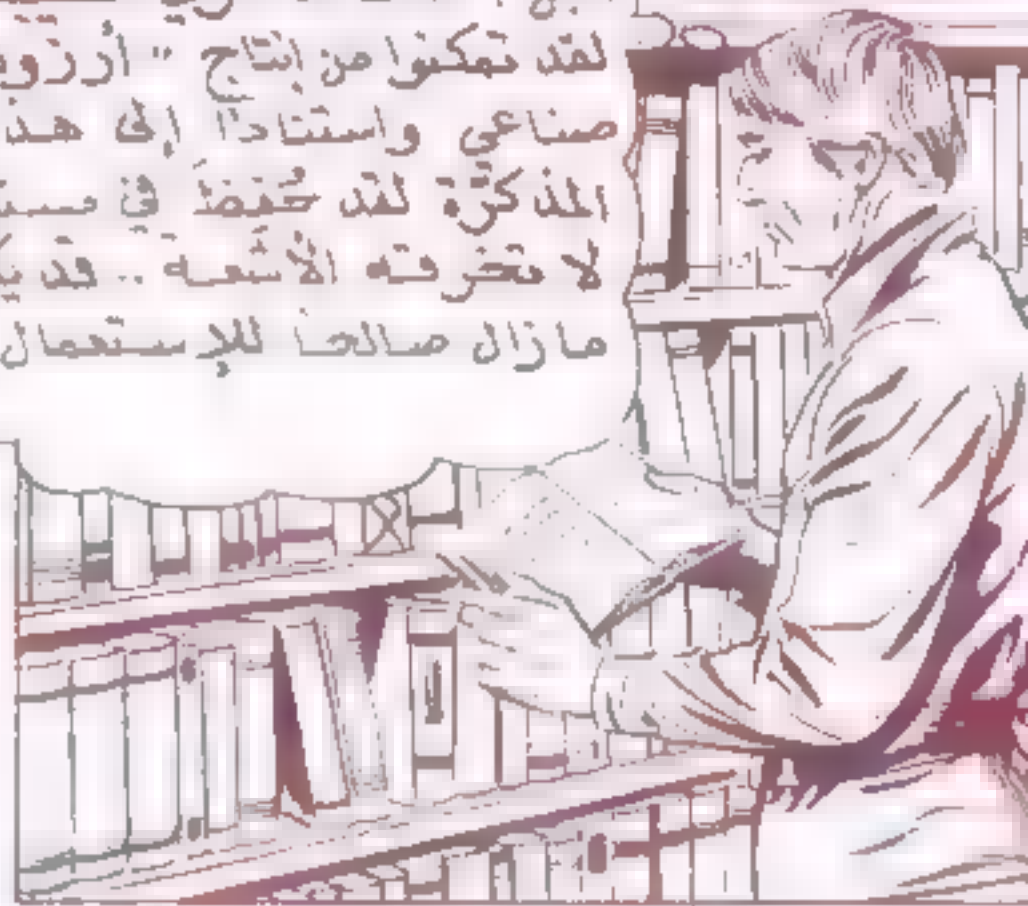 لقد تمكنوا من إنتاج " أرزو
صناعي واستنادًا إلى هذ
المذكرة لقد حُفِظَ في
لا تخرقه الأشعة .. قد
مازال صالحا للإستعمال